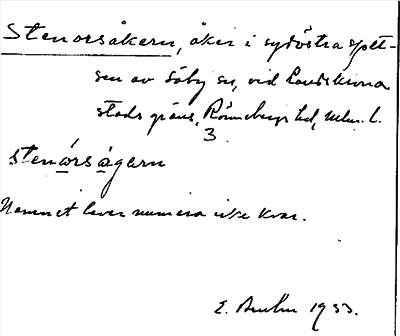 Stenorsåkern, åker i sydöstra spet-
sen av Säby sn, vid Landskrona
stads gräns, Rönnebergs hd, Mlm. l.
3
stenårsågern
Namnet lever numera icke kvar.
E. 1933.